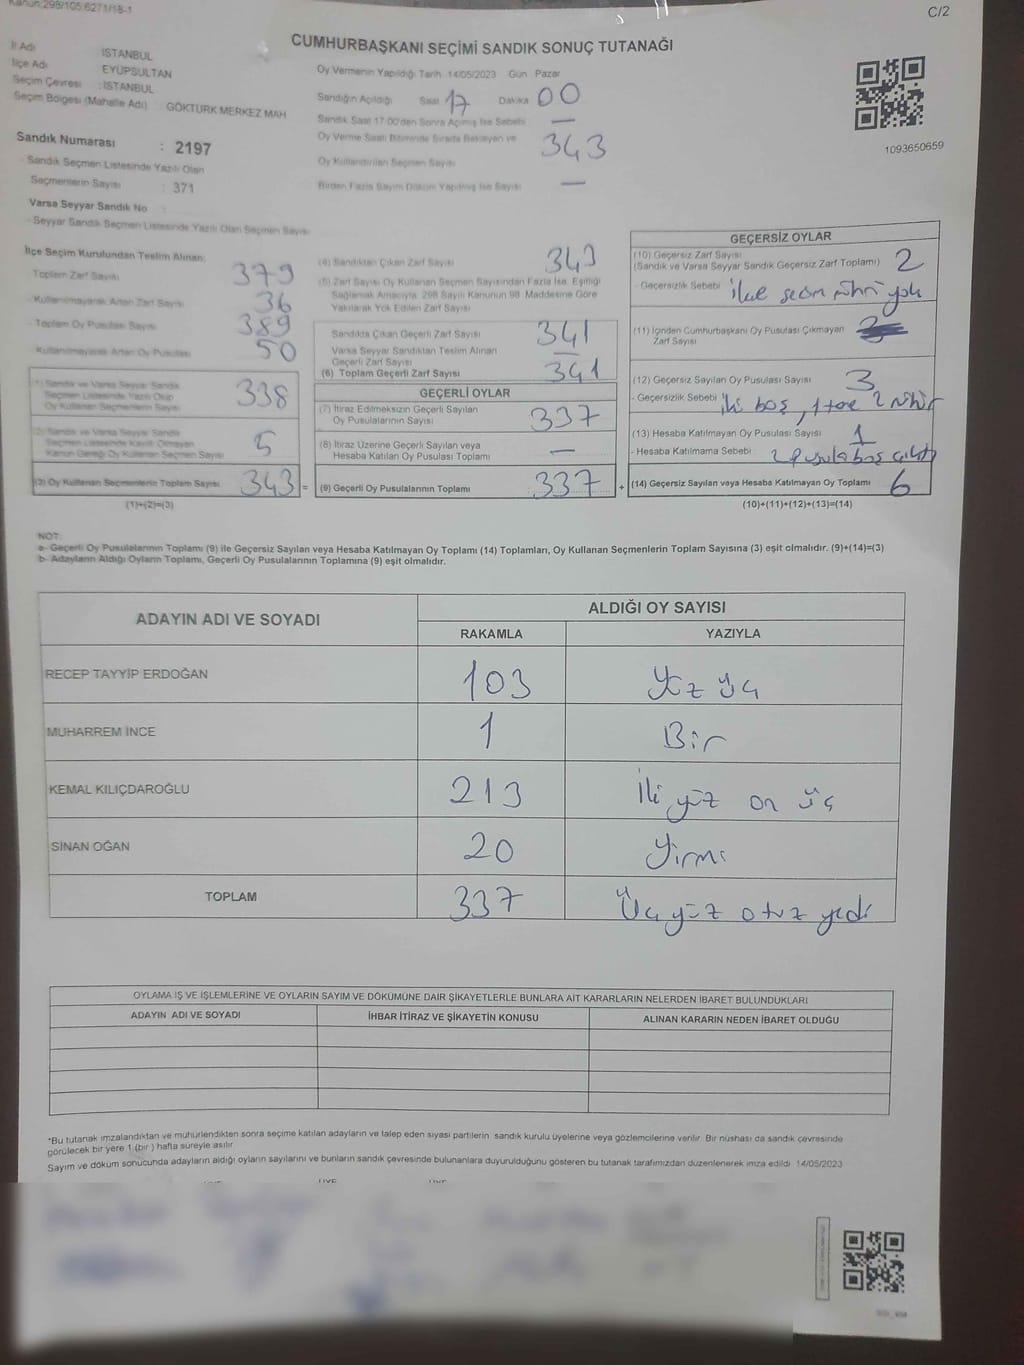 Kanun:298/105.6271/18-1
C/2
CUMHURBAŞKANI SEÇİMİ SANDIK SONUÇ TUTANAĞI
İl Adı : İSTANBUL
İlçe Adı : EYÜPSULTAN
Seçim Çevresi : İSTANBUL
Seçim Bölgesi (Mahalle Adı) : GÖKTÜRK MERKEZ MAH
Sandık Numarası : 2197
- Sandık Seçmen Listesinde Yazılı Olan
Seçmenlerin Sayısı : 371
Varsa Seyyar Sandık No :
- Seyyar Sandık Seçmen Listesinde Yazılı Olan Seçmen Sayısı
Oy Vermenin Yapıldığı Tarih 14/05/2023 Gün Pazar
Sandığın Açıldığı Saat 17 Dakika 00
Sandık Saat 17:00'den Sonra Açılmış İse Sebebi —
Oy Verme Saati Bitiminde Sırada Bekleyen ve 343
Oy Kullandırılan Seçmen Sayısı
Birden Fazla Sayım Döküm Yapılmış İse Sayısı —
1093650659
İlçe Seçim Kurulundan Teslim Alınan;
Toplam Zarf Sayısı 379
- Kullanılmayarak Artan Zarf Sayısı 36
- Toplam Oy Pusulası Sayısı 389
- Kullanılmayarak Artan Oy Pusulası 50
(1) Sandık ve Varsa Seyyar Sandık
Seçmen Listesinde Yazılı Olup
Oy Kullanan Seçmenlerin Sayısı 338
(2) Sandık ve Varsa Seyyar Sandık
Seçmen Listesinde Kayıtlı Olmayan
Kanun Gereği Oy Kullanan Seçmen Sayısı 5
(3) Oy Kullanan Seçmenlerin Toplam Sayısı 343 =
(1)+(2)=(3)
(4) Sandıktan Çıkan Zarf Sayısı 343
(5) Zarf Sayısı Oy Kullanan Seçmen Sayısından Fazla İse, Eşitliği
Sağlamak Amacıyla, 298 Sayılı Kanunun 98. Maddesine Göre
Yakılarak Yok Edilen Zarf Sayısı
Sandıkta Çıkan Geçerli Zarf Sayısı 341
Varsa Seyyar Sandıktan Teslim Alınan
Geçerli Zarf Sayısı —
(6) Toplam Geçerli Zarf Sayısı 341
GEÇERLİ OYLAR
(7) İtiraz Edilmeksizin Geçerli Sayılan
Oy Pusulalarının Sayısı 337
(8) İtiraz Üzerine Geçerli Sayılan veya
Hesaba Katılan Oy Pusulası Toplamı —
(9) Geçerli Oy Pusulalarının Toplamı 337 +
GEÇERSİZ OYLAR
(10) Geçersiz Zarf Sayısı
(Sandık ve Varsa Seyyar Sandık Geçersiz Zarf Toplamı) 2
- Geçersizlik Sebebi ilçe seçim mührü yok
(11) İçinden Cumhurbaşkanı Oy Pusulası Çıkmayan
Zarf Sayısı
(12) Geçersiz Sayılan Oy Pusulası Sayısı 3
- Geçersizlik Sebebi iki boş, 1 tane 2 mühür
(13) Hesaba Katılmayan Oy Pusulası Sayısı 1
- Hesaba Katılmama Sebebi 2 pusula boş çıktı
(14) Geçersiz Sayılan veya Hesaba Katılmayan Oy Toplamı 6
(10)+(11)+(12)+(13)=(14)
NOT:
a- Geçerli Oy Pusulalarının Toplamı (9) ile Geçersiz Sayılan veya Hesaba Katılmayan Oy Toplamı (14) Toplamları, Oy Kullanan Seçmenlerin Toplam Sayısına (3) eşit olmalıdır. (9)+(14)=(3)
b- Adayların Aldığı Oyların Toplamı, Geçerli Oy Pusulalarının Toplamına (9) eşit olmalıdır.
ADAYIN ADI VE SOYADI ALDIĞI OY SAYISI
RAKAMLA YAZIYLA
RECEP TAYYİP ERDOĞAN 103 Yüz üç
MUHARREM İNCE 1 Bir
KEMAL KILIÇDAROĞLU 213 İki yüz on üç
SİNAN OĞAN 20 Yirmi
TOPLAM 337 Üç yüz otuz yedi
OYLAMA İŞ VE İŞLEMLERİNE VE OYLARIN SAYIM VE DÖKÜMÜNE DAİR ŞİKAYETLERLE BUNLARA AİT KARARLARIN NELERDEN İBARET BULUNDUKLARI
ADAYIN ADI VE SOYADI İHBAR İTİRAZ VE ŞİKAYETİN KONUSU ALINAN KARARIN NEDEN İBARET OLDUĞU
*Bu tutanak imzalandıktan ve mühürlendikten sonra seçime katılan adayların ve talep eden siyasi partilerin sandık kurulu üyelerine veya gözlemcilerine verilir. Bir nüshası da sandık çevresinde
görülecek bir yere 1 (bir) hafta süreyle asılır.
Sayım ve döküm sonucunda adayların aldığı oyların sayılarını ve bunların sandık çevresinde bulunanlara duyurulduğunu gösteren bu tutanak tarafımızdan düzenlenerek imza edildi. 14/05/2023